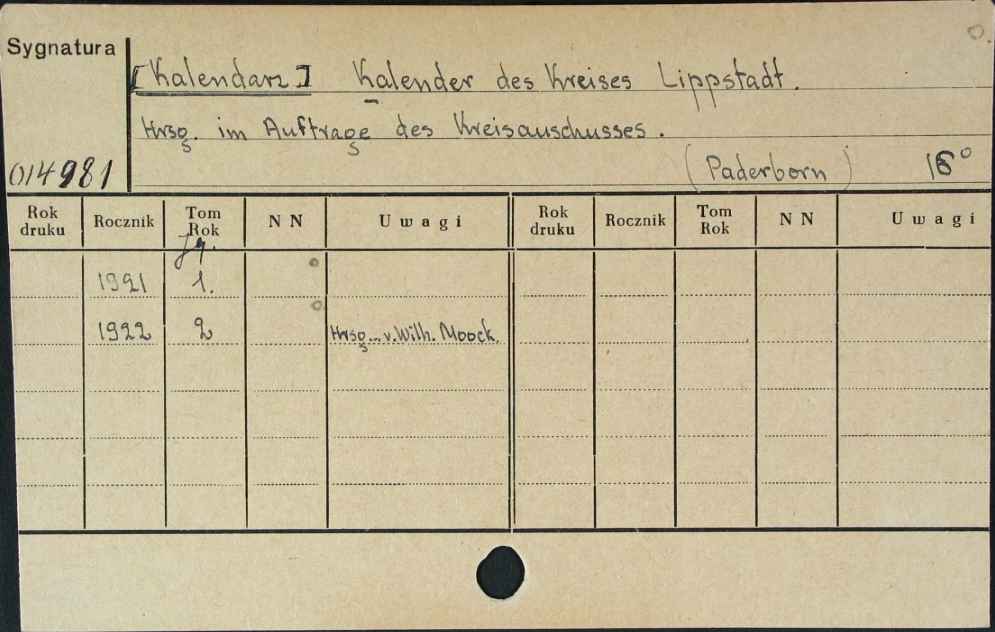 Sygnatura
[Kalendarz] Kalender des Kreises Lippstadt.
Hrsg. im Auftrage des Kreisauschusses.
014981 (Paderborn) 16°
Rok druku Rocznik Tom Rok NN Uwagi Rok druku Rocznik Tom Rok NN Uwagi
Jg.
1921 1.
1922 2 Hrsg... v. Wilh. Moock.